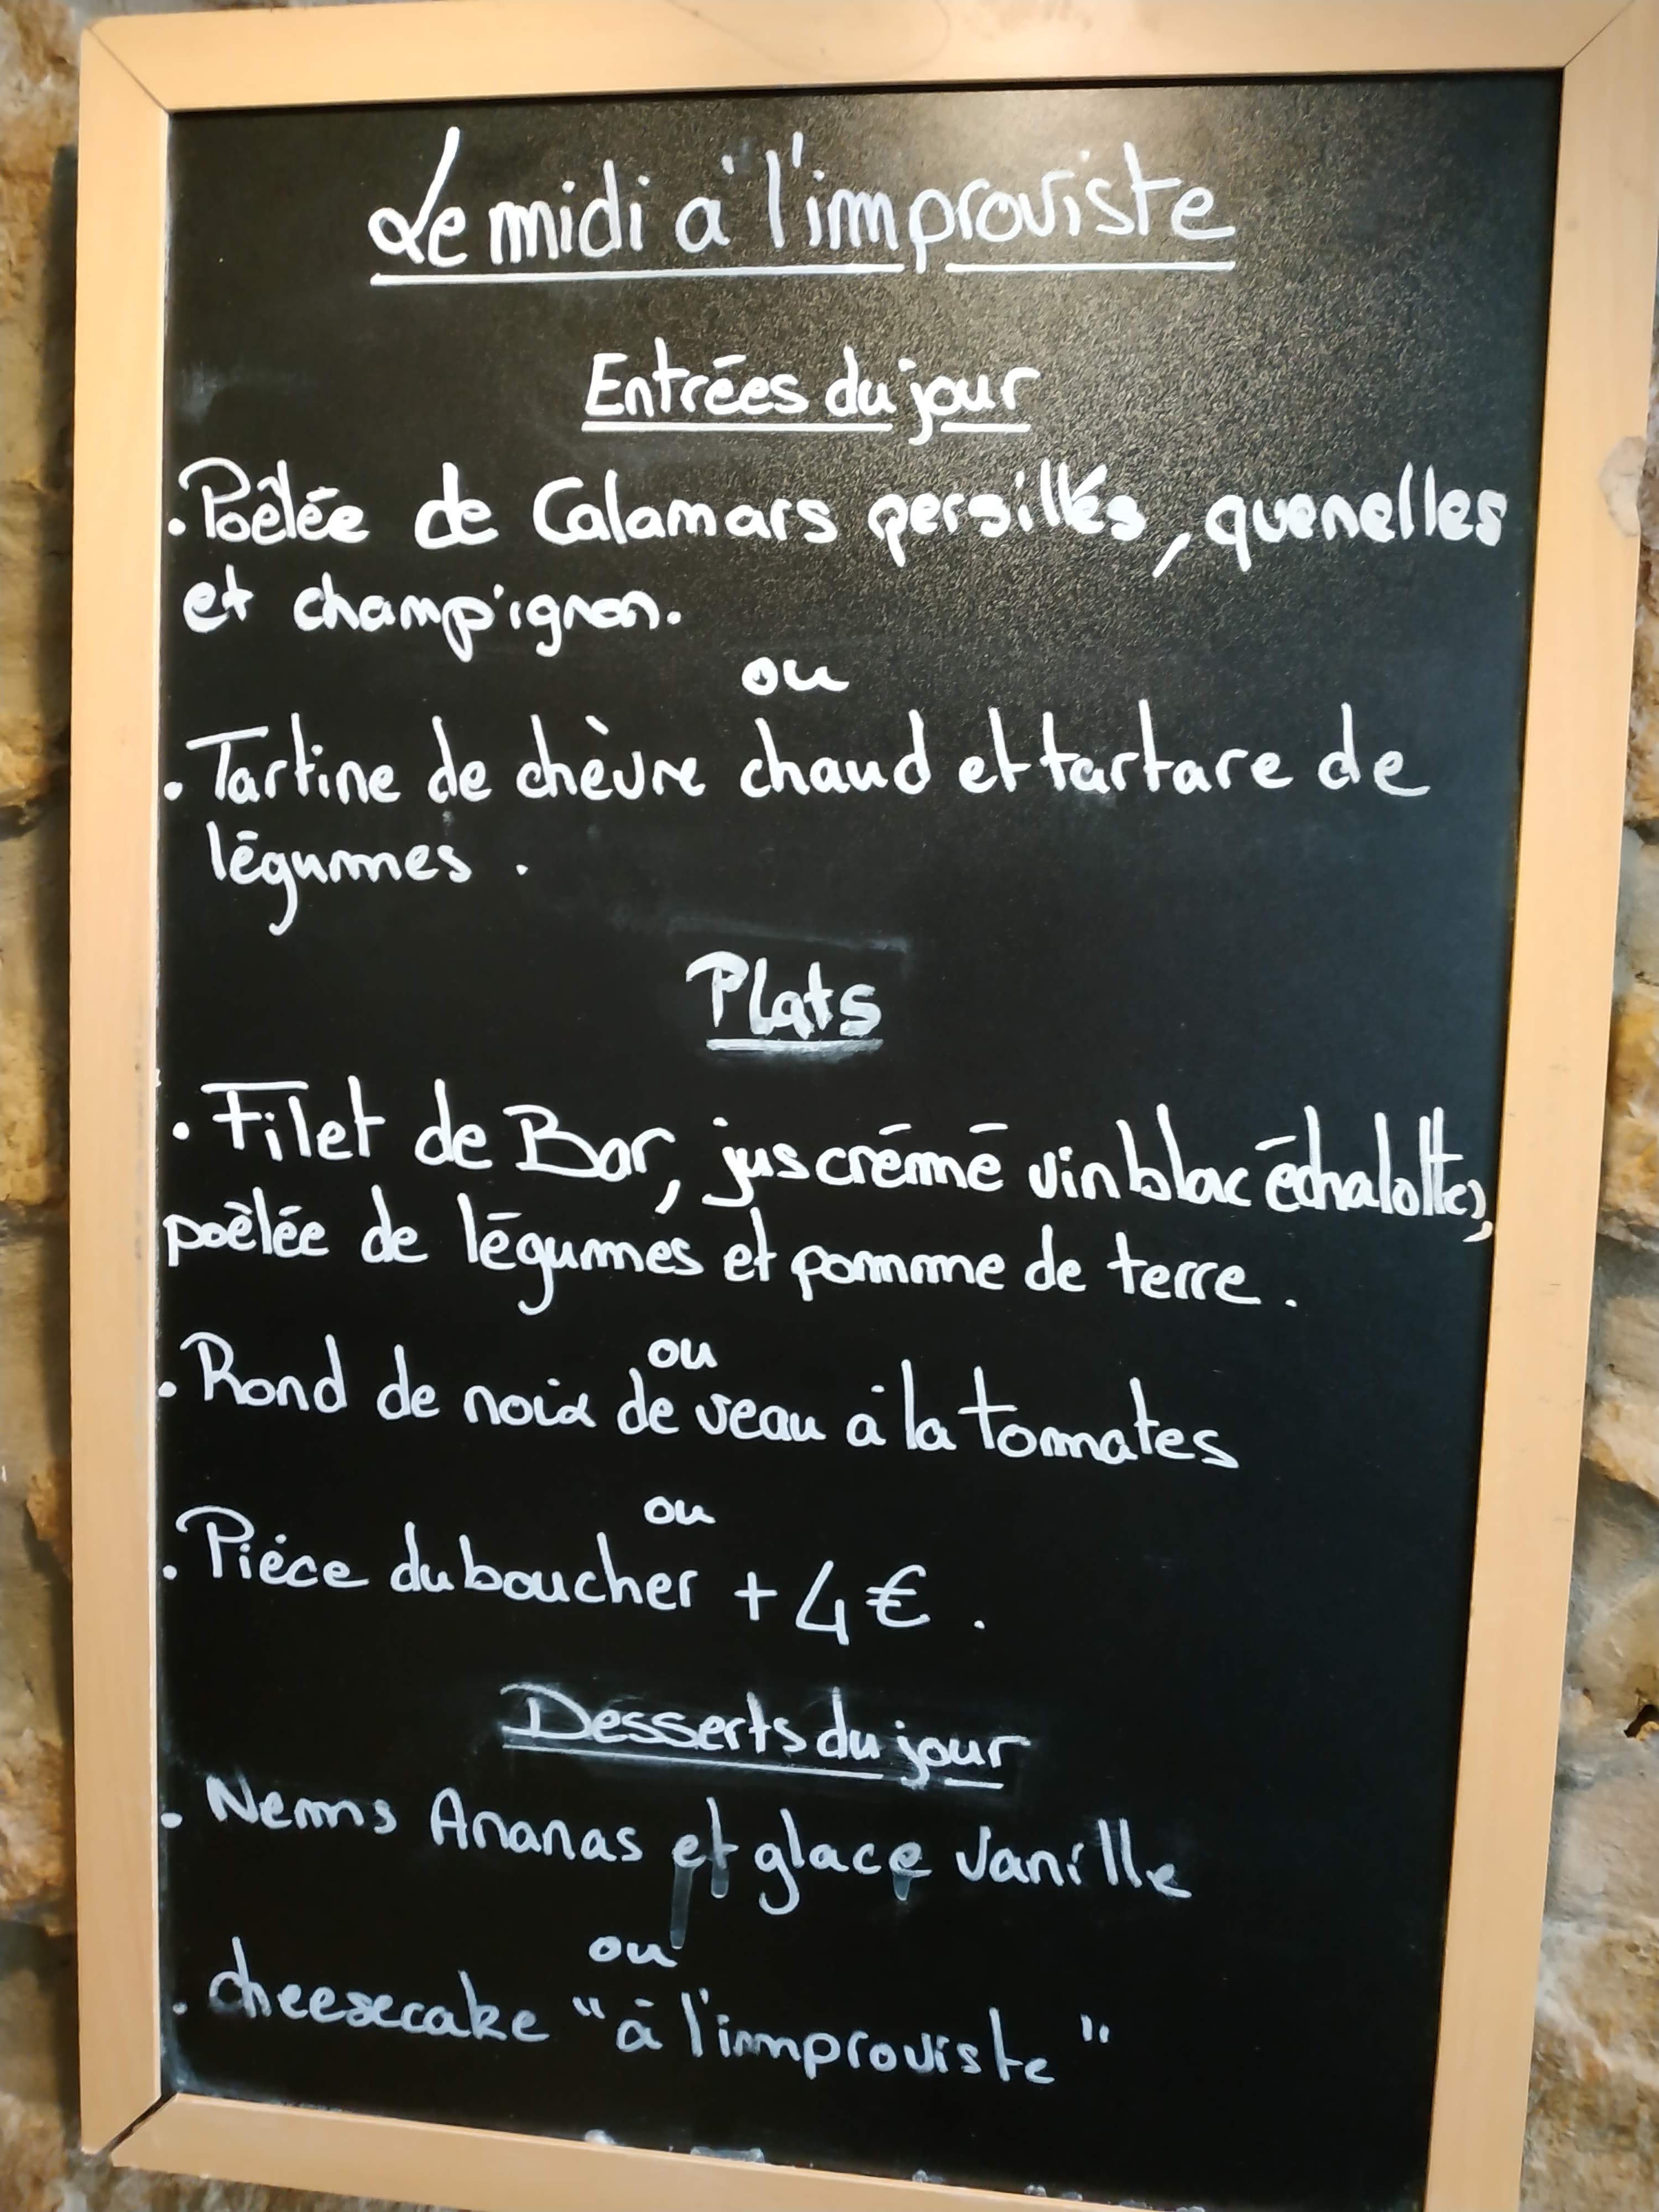 Le midi à l'improviste
Entrées du jour
. Poêlée de Calamars persillés, quenelles
et champignon.
ou
. Tartine de chèvre chaud et tartare de
légumes .
Plats
. Filet de Bar, jus crémé vin blac échalottes,
poêlée de légumes et pomme de terre .
ou
. Rond de noix de veau à la tomates
ou
. Piéce du boucher + 4€ .
Desserts du jour
. Nems Ananas et glace vanille
ou
. cheesecake "à l'improviste"